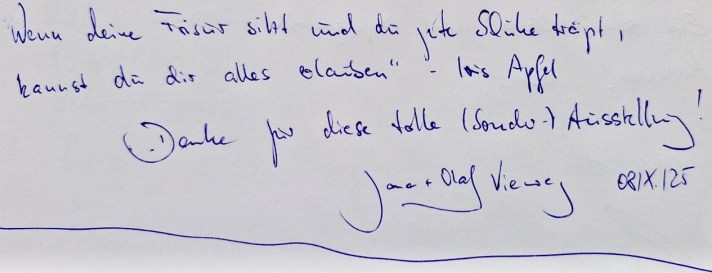 Wenn deine Frisur sitzt und du gute Schuhe trägst,
kannst du dir alles erlauben" - Iris Apfel
Danke für diese tolle (Sonder-) Ausstellung!
Jana + Olaf Vieweg 08/X./25